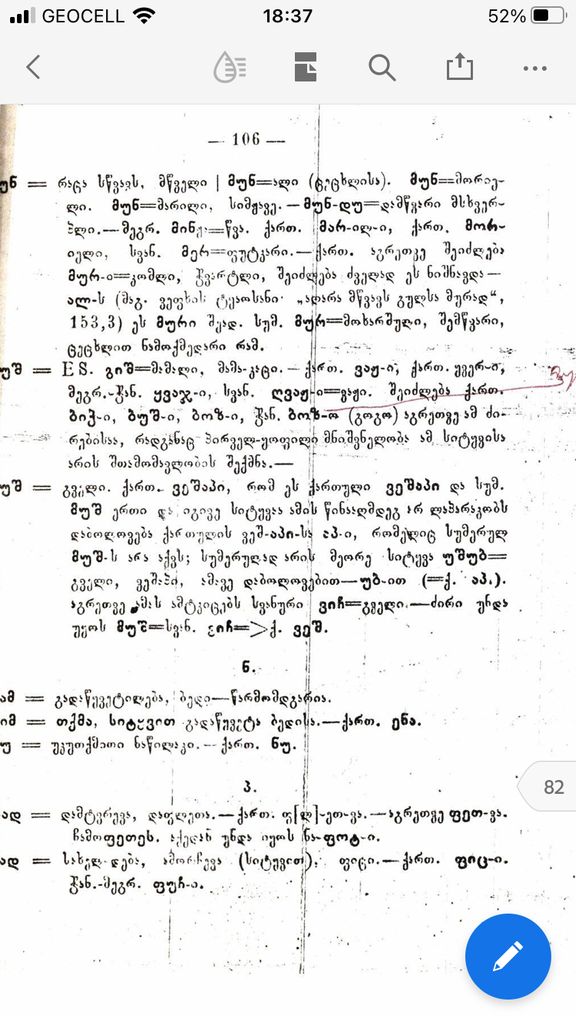 GEOCELL 18:37 52%
— 106 —
უნ = რაცა სწვავს, მწველი | მუნ=ალი (ცეცხლისა). მუნ=მორიე-
ლი. მუნ=მარილი, სიმჟავე.—მუნ-დუ=დამწვარი მსხვერ-
პლი.—მეგრ. წვა. ქართ. მარ-ილ-ი, ქართ. მორ-
იელი, სვან. მერ=ფუტკარი.—ქართ. აგრეთვე შეიძლება
მურ-ი=კომლი, ჭვარტლი, შეიძლება ძველად ეს ნიშნავდა—
ალ-ს (მაგ. ვეფხის ტყაოსანი „აღარა მწვავს გულსა მურად“,
153,3) ეს მური შეად. სუმ. მურ=მოხარშული, შემწვარი,
ცეცხლით ნამოქმედარი რამ.
უშ = ES. გიშ=მამალი, მამა-კაცი.—ქართ. ვაჟ-ი, ქართ. ყვერ-ი,
მეგრ.-ჭან. ყვაჯ-ი, სვან. ღვაჟ-ი=ვაჟი. შეიძლება ქართ.
ბიჭ-ი, ბუშ-ი, ბოზ-ი, ჭან. ბოზ-ო (გოგო) აგრეთვე ამ ძი-
რებისაა, რადგანაც პირველ-ყოფილი მნიშვნელობა ამ სიტყვისა
არის შთამომავლობის შექმნა.—
უშ = გველი. ქართ. ვეშაპი, რომ ეს ქართული ვეშაპი და სუმ.
მუშ ერთი და იგივე სიტყვაა ამის წინააღმდეგ არ ლაპარაკობს
დაბოლოვება ქართულის ვეშ-აპი-სა აპ-ი, რომელიც სუმერულ
მუშ-ს არა აქვს; სუმერულად არის მეორე სიტყვა უშუბ=
გველი, ვეშაპი, ამავე დაბოლოვებით—უბ-ით (=ქ. აპ.).
აგრეთვე ამას ამტკიცებს სვანური ვიჩ=გველი.—ძირი უნდა
უყოს მუშ=სვან. ვიჩ=>ქ. ვეშ.
ნ.
ამ = გადაწყვეტილება, ბედი—წარმომდგარია.
იმ = თქმა, სიტყვით გადაწყვეტა ბედისა.—ქართ. ენა.
უ = უკუთქმითი ნაწილაკი.—ქართ. ნუ.
82
პ.
ად = დამტვრევა, დაფლეთა.—ქართ. ფ[ლ]-ეთ-ვა.—აგრეთვე ფეთ-ვა.
ჩამოფეთეს. აქედან უნდა იყოს ნა-ფოტ-ი.
ად = სახელ-დება, ამორჩევა (სიტყვით), ფიცი.—ქართ. ფიც-ი.
ჭან.-მეგრ. ფუჩ-ი.